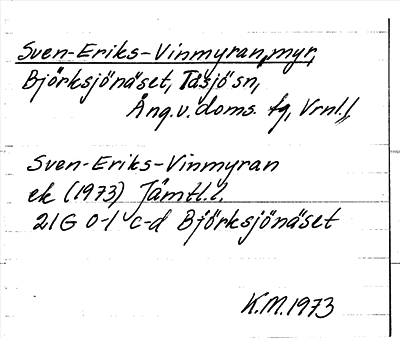 Sven-Eriks-Vinmyran, myr,
Björksjönäset, Tåsjö sn,
Ång. v. doms. fg, Vrnl. l,
Sven-Eriks-Vinmyran
ek (1973) Jämtl. l.
21G 0-1 c-d Björksjönäset
K.M. 1973